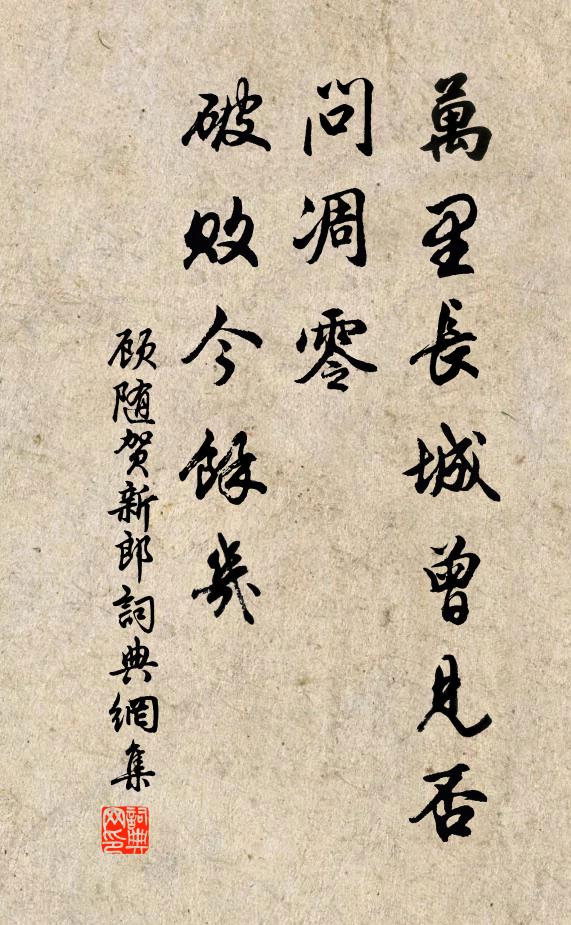 萬里長城曾見否
問凋零
破敗今餘幾
顾随贺新郎詞典網集
詞典网印